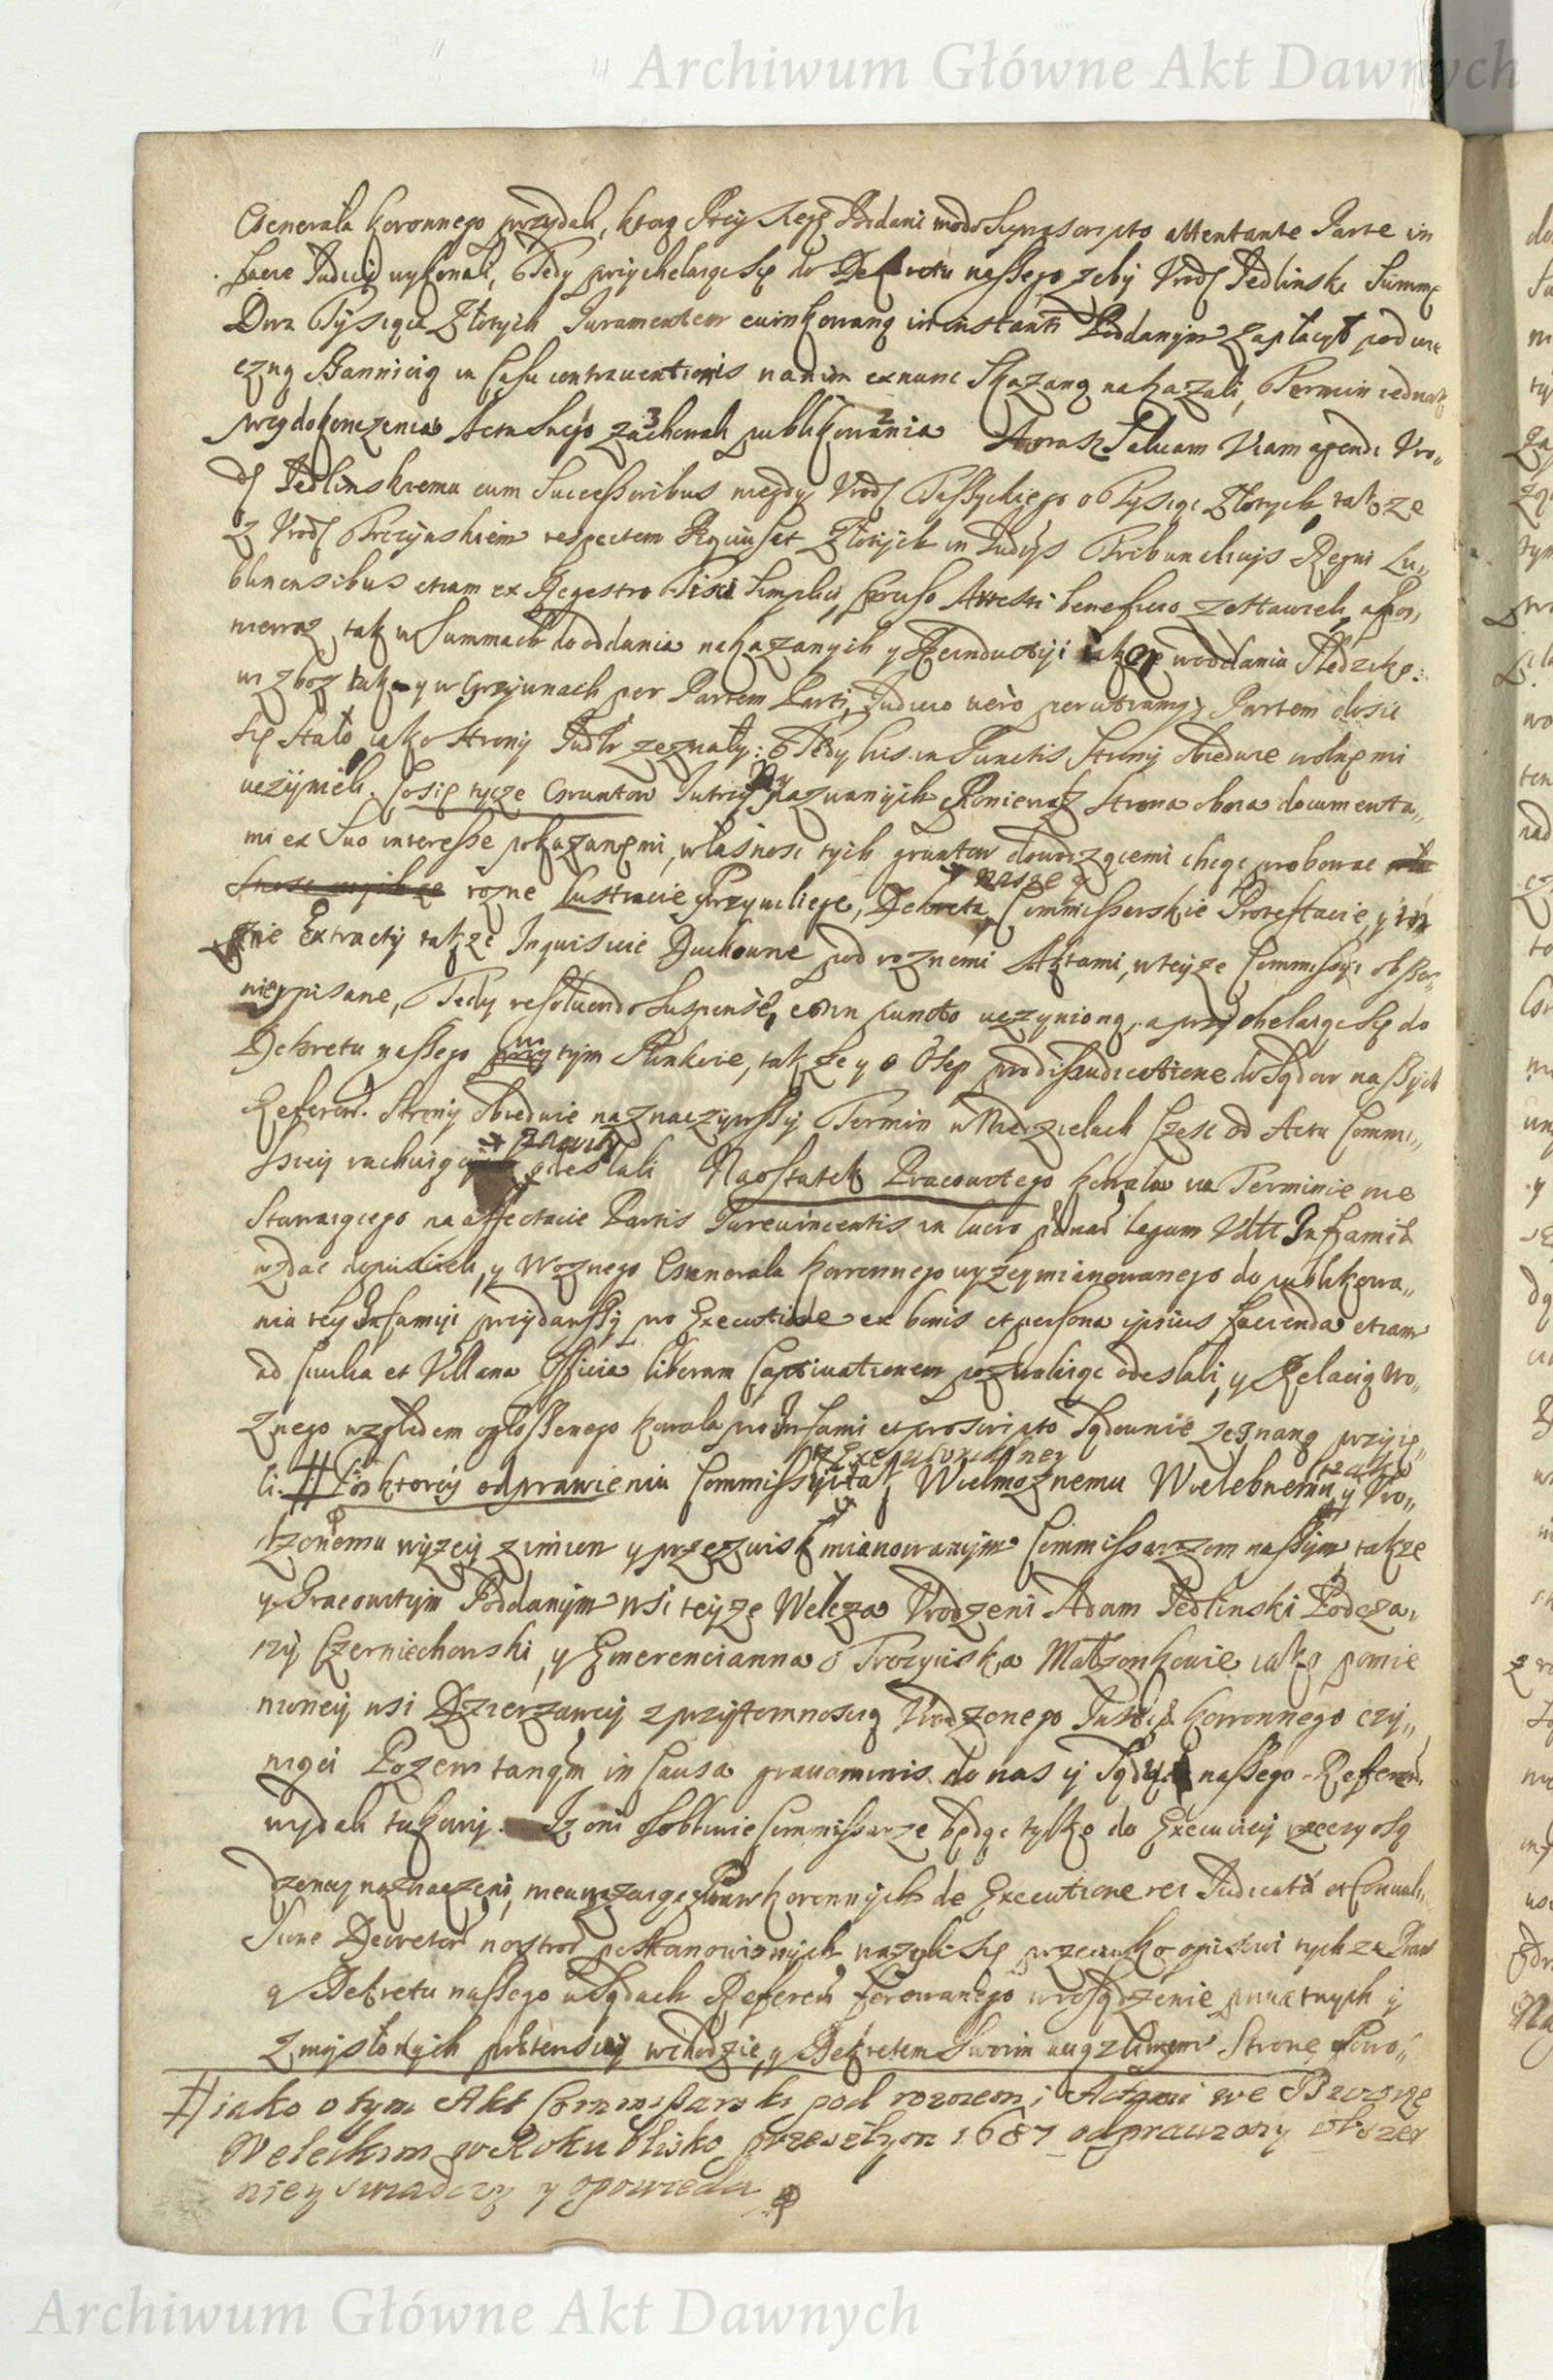 Archiwum Główne Akt Dawnych
Generała koronnego przydali, ktorą Przysięgę Poddani modo suprascripto attentante Parte in
facie Judicij wykonali, Tedy przychelaiąc się do Dekretu naszego zeby Urodz Jedlinski Summę
Dwa Tysiąca Złotych Juramentem ewinkowaną in instanti Poddanym zapłacył pod wie
czną Bannicią in Casu contraventionis na nim ex nunc skazaną nakazali, Termin iednak
przy dokonczenia Actu swego zachowali publikowania Salvam Viam agendi Uro„
dz Jedlinskiemu cum Successoribus niegdy Urodz o Tysiąc Złotych, takze
z Urodz Trczynskiem respectem Złotych in Judicijs Tribunalicijs Regni Lu„
blinensibus etiam ex Regestro Fisci simplici, Arresti beneficio zostawieli, a pon„
niewaz tak w Summach do oddania nakazanych y w oddaniu
w zboz takze y w Grzywnach per Partem Parti, Judicio vero per utramq Partem dosic
się stało, iako Strony Sądk zeznały: Tedy his in Punctis Strony obiedwie wolnemi
uczynieli. Co się tycze Gruntow nazwanych Poniewaz Strona obora documenta„
mi ex suo interesse pokazanemi, własnosc tych gruntow dowodzącemi chcąc probowac
rozne Lustracie Przywileje, Dekreta nasze Commissarskie Protestacie, y roz
zne Extracty takze Inquisicie Duchowne pod roznemi Aktami, w teyze Commissyi obszer„
niey pisane, Tedy resolvendo suspensę, eo in puncto uczynioną, a przychelaiąc się do
Dekretu naszego w tym Punkcie, takze y o Osep pro disiudicatione do Sądow naszych
Referen. Strony obiedwie naznaczywszy Termin w Niedzielach szesc od Actu Commi„
ssiey rachuiąc zawity odeslali Naostatek Pracowitego Kowala na Terminie nie
Stawaiącego na affectacie Partis Jurevincentis in lucro paenas legum Infamię
wzdac dopuscieli, y Woznego Generała koronnego wyzey mianowanego do publikowa„
nia tey Infamiji przydawszy pro Executione ex bonis et persona ipsius facienda etiam
ad Civilia et Villana Officia liberam Captivationem pozwalaiąc odeslali, y Relacią Wo„
znego względem ogłoszenego kowala pro Infami et proscripto Sądownie zeznaną przyię„
li. # Po ktorey odprawieniu Commissyi tak Wielmoznemu Wielebnemu, y Uro„
dzonemu wyzey z imion y przezwisk mianowanym Commissarzom naszym, takze
y Pracowitym Poddanym wsi teyze Welcza Urodzeni Adam Jedlinski Podcza„
szy Czerniechowski, y Emerencianna Trczynska Małzonkowie iako pomie
nioney wsi Dzierzawcy z przytomnoscią Urodzonego Instig. koronnego czy„
niącei Pozew tangym in Causa gravaminis do nas y Sądu naszego Referen
wydali takowy. Iz oni osobliwie Commissarze będąc tylko do Execuciey rzeczy osą
dzoney naznaczeni, nieuwazaiąc Praw koronnych de Executione rei Judicatae et Convul„
sione Decretor nostror postanowionych wazyli się przeciwko opisowi tychze Praw
y Dekretu naszego w Sądach Referen ferowanego w rosądzenie privatnych y
zmyslonych pretensiey wchodzic, y Dekretem swoim uciązliwym Stronę Powo„
# iako o tym Akt Commissarski pod rozoem i Actami we Wsi
Weleckim w Roku blisko przeszłym 1687 odprawiony obszer
niey swiadczy y opowieda
Archiwum Główne Akt Dawnych